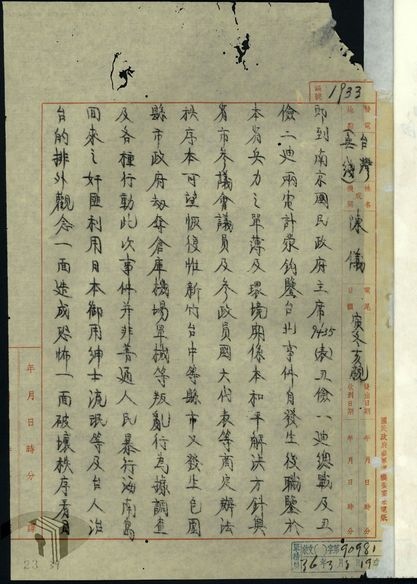 1933
台灣
陳儀
寅冬亥親
即到南京國民政府主席9435丑儉一迪總戰及丑
儉二迪兩電計蒙鈞鑒台北事件自發生後職鑒於
本省兵力之單薄及環境關係本和平解決方針與
省市參議會議員及參政員國大代表等商定辦法
秩序本可望恢復惟新竹台中等縣市又發生包圍
縣市政府劫奪倉庫機場軍械等叛亂行為據調查
及各種行動此次事件并非普通人民暴行海南島
回來之奸匪利用日本御用紳士流氓等及台人治
台的排外觀念一面造成恐怖一面破壞秩序看
年月日時分
字第90981
36年3月